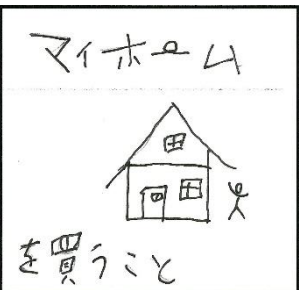 マイホーム
を買うこと